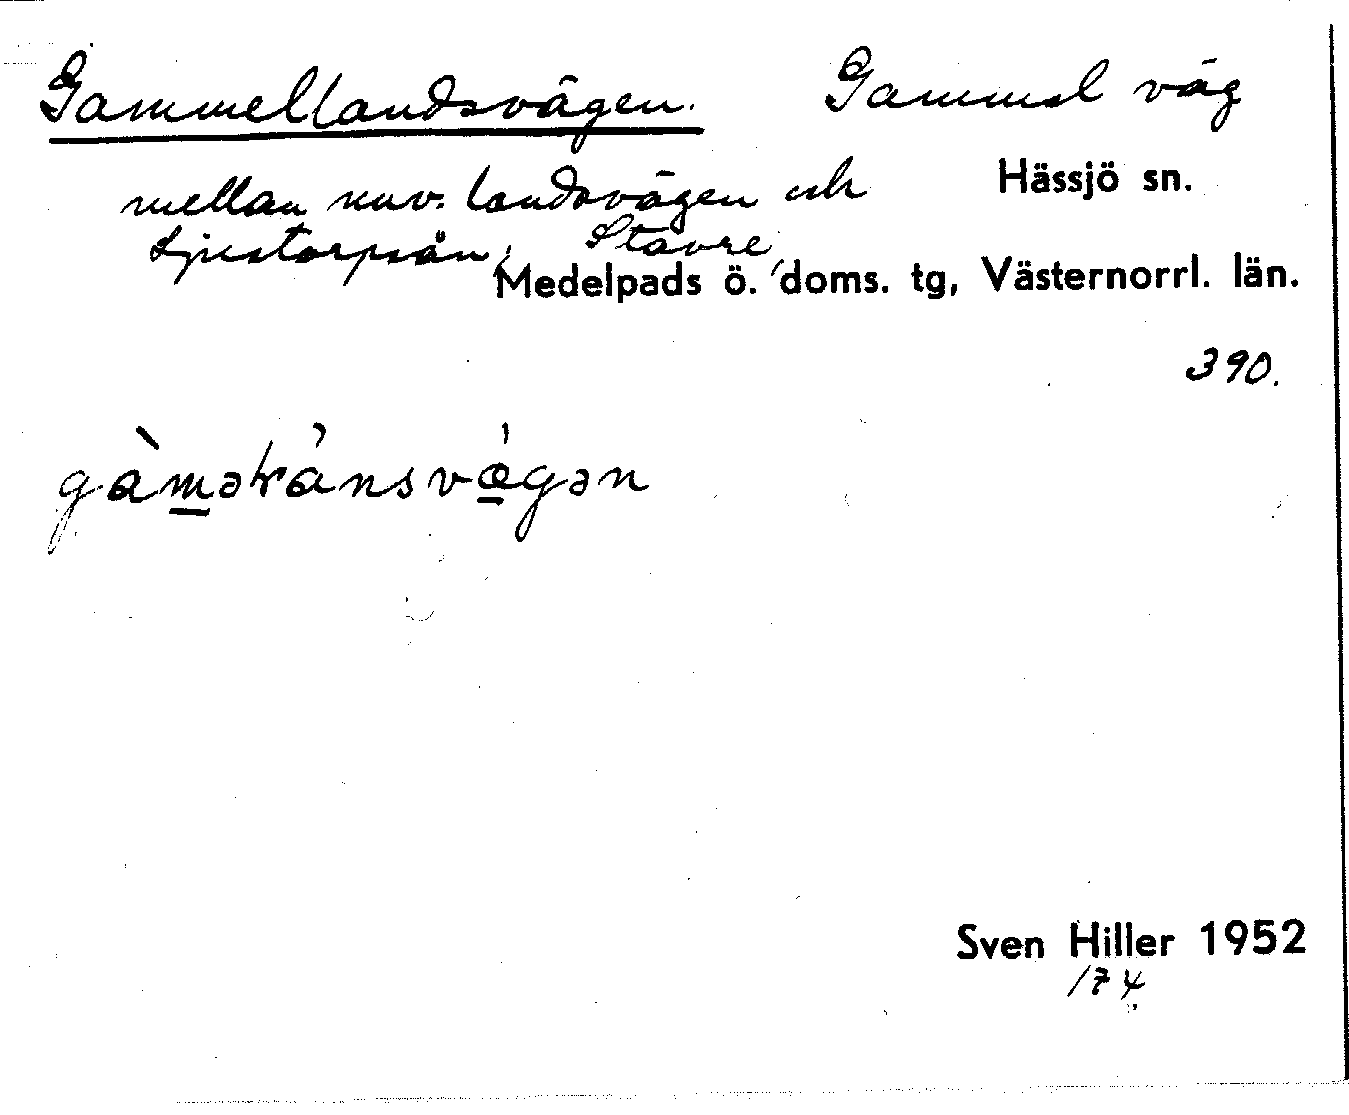 Gammellandsvägen. Gammal väg
mellan nuv. landsvägen och Hässjö sn.
Ljustorpsån, Stavre,
Medelpads ö. doms. tg, Västernorrl. län.
390.
Sven Hiller 1952
174